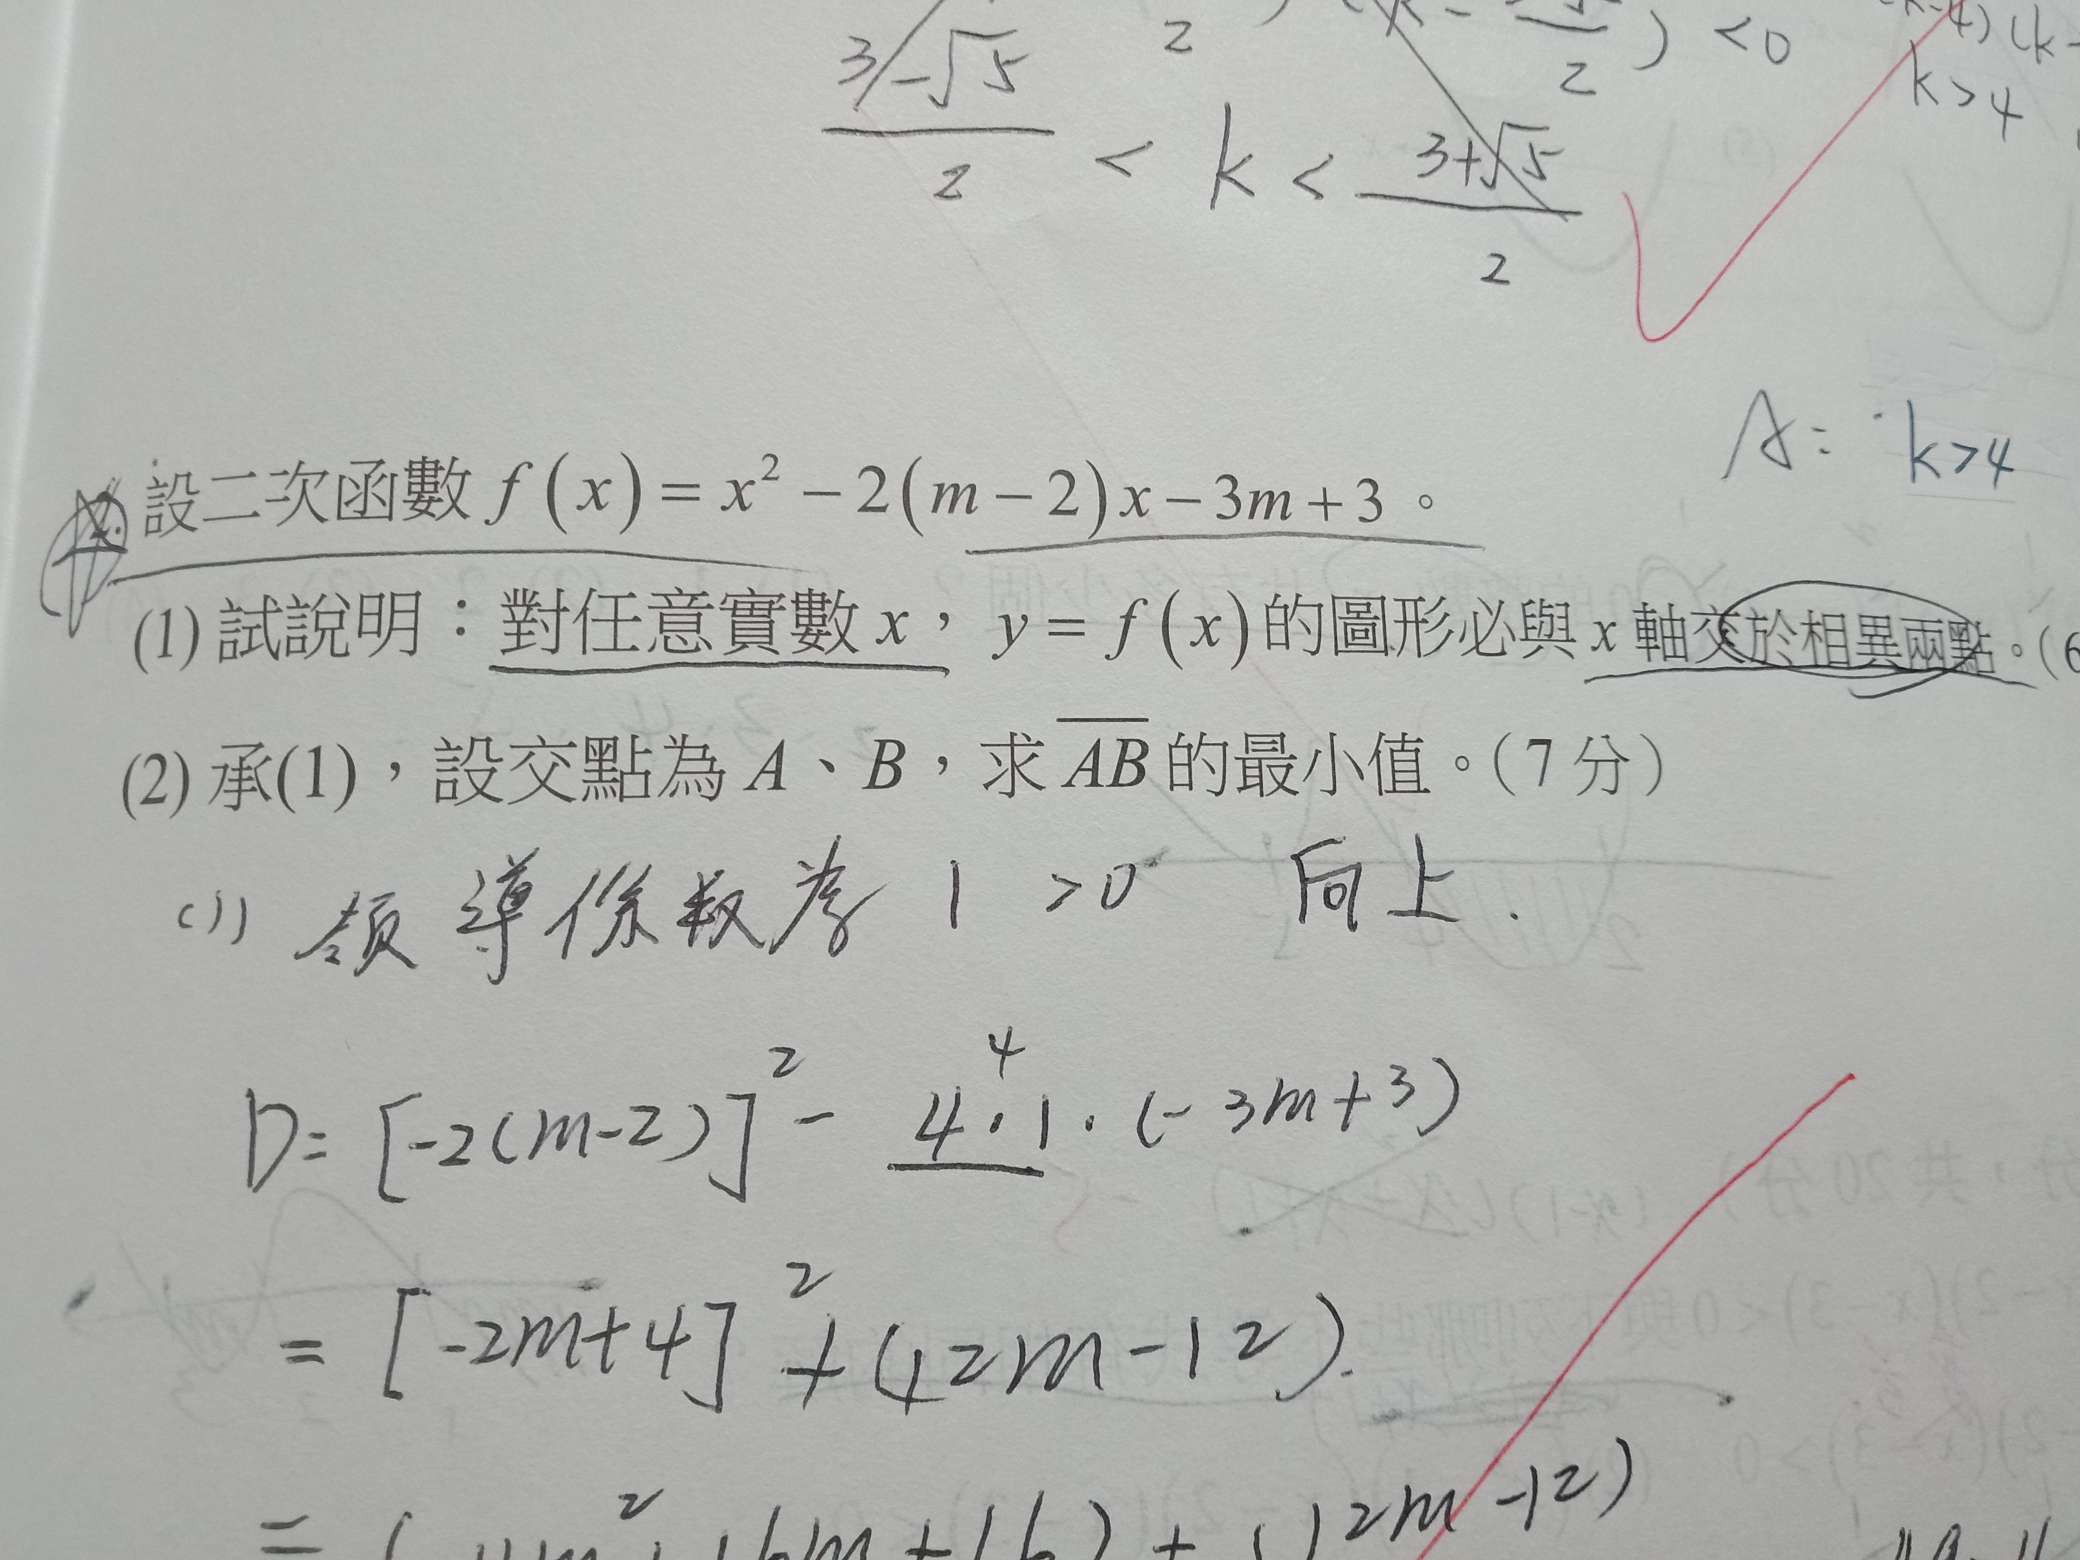 3-√5/2 < k < 3+√5/2
<0
k>4
A: k>4
設二次函數 f(x)=x²-2(m-2)x-3m+3。
(1) 試說明：對任意實數 x，y=f(x)的圖形必與 x 軸交於相異兩點。(6
(2) 承(1)，設交點為 A、B，求 AB 的最小值。(7 分)
(1) 領導係數為 1 >0 向上.
D= [-2(m-2)]² - 4·1·(-3m+3)
4
= [-2m+4]² + (12m-12).
16m+16) + (12m-12)